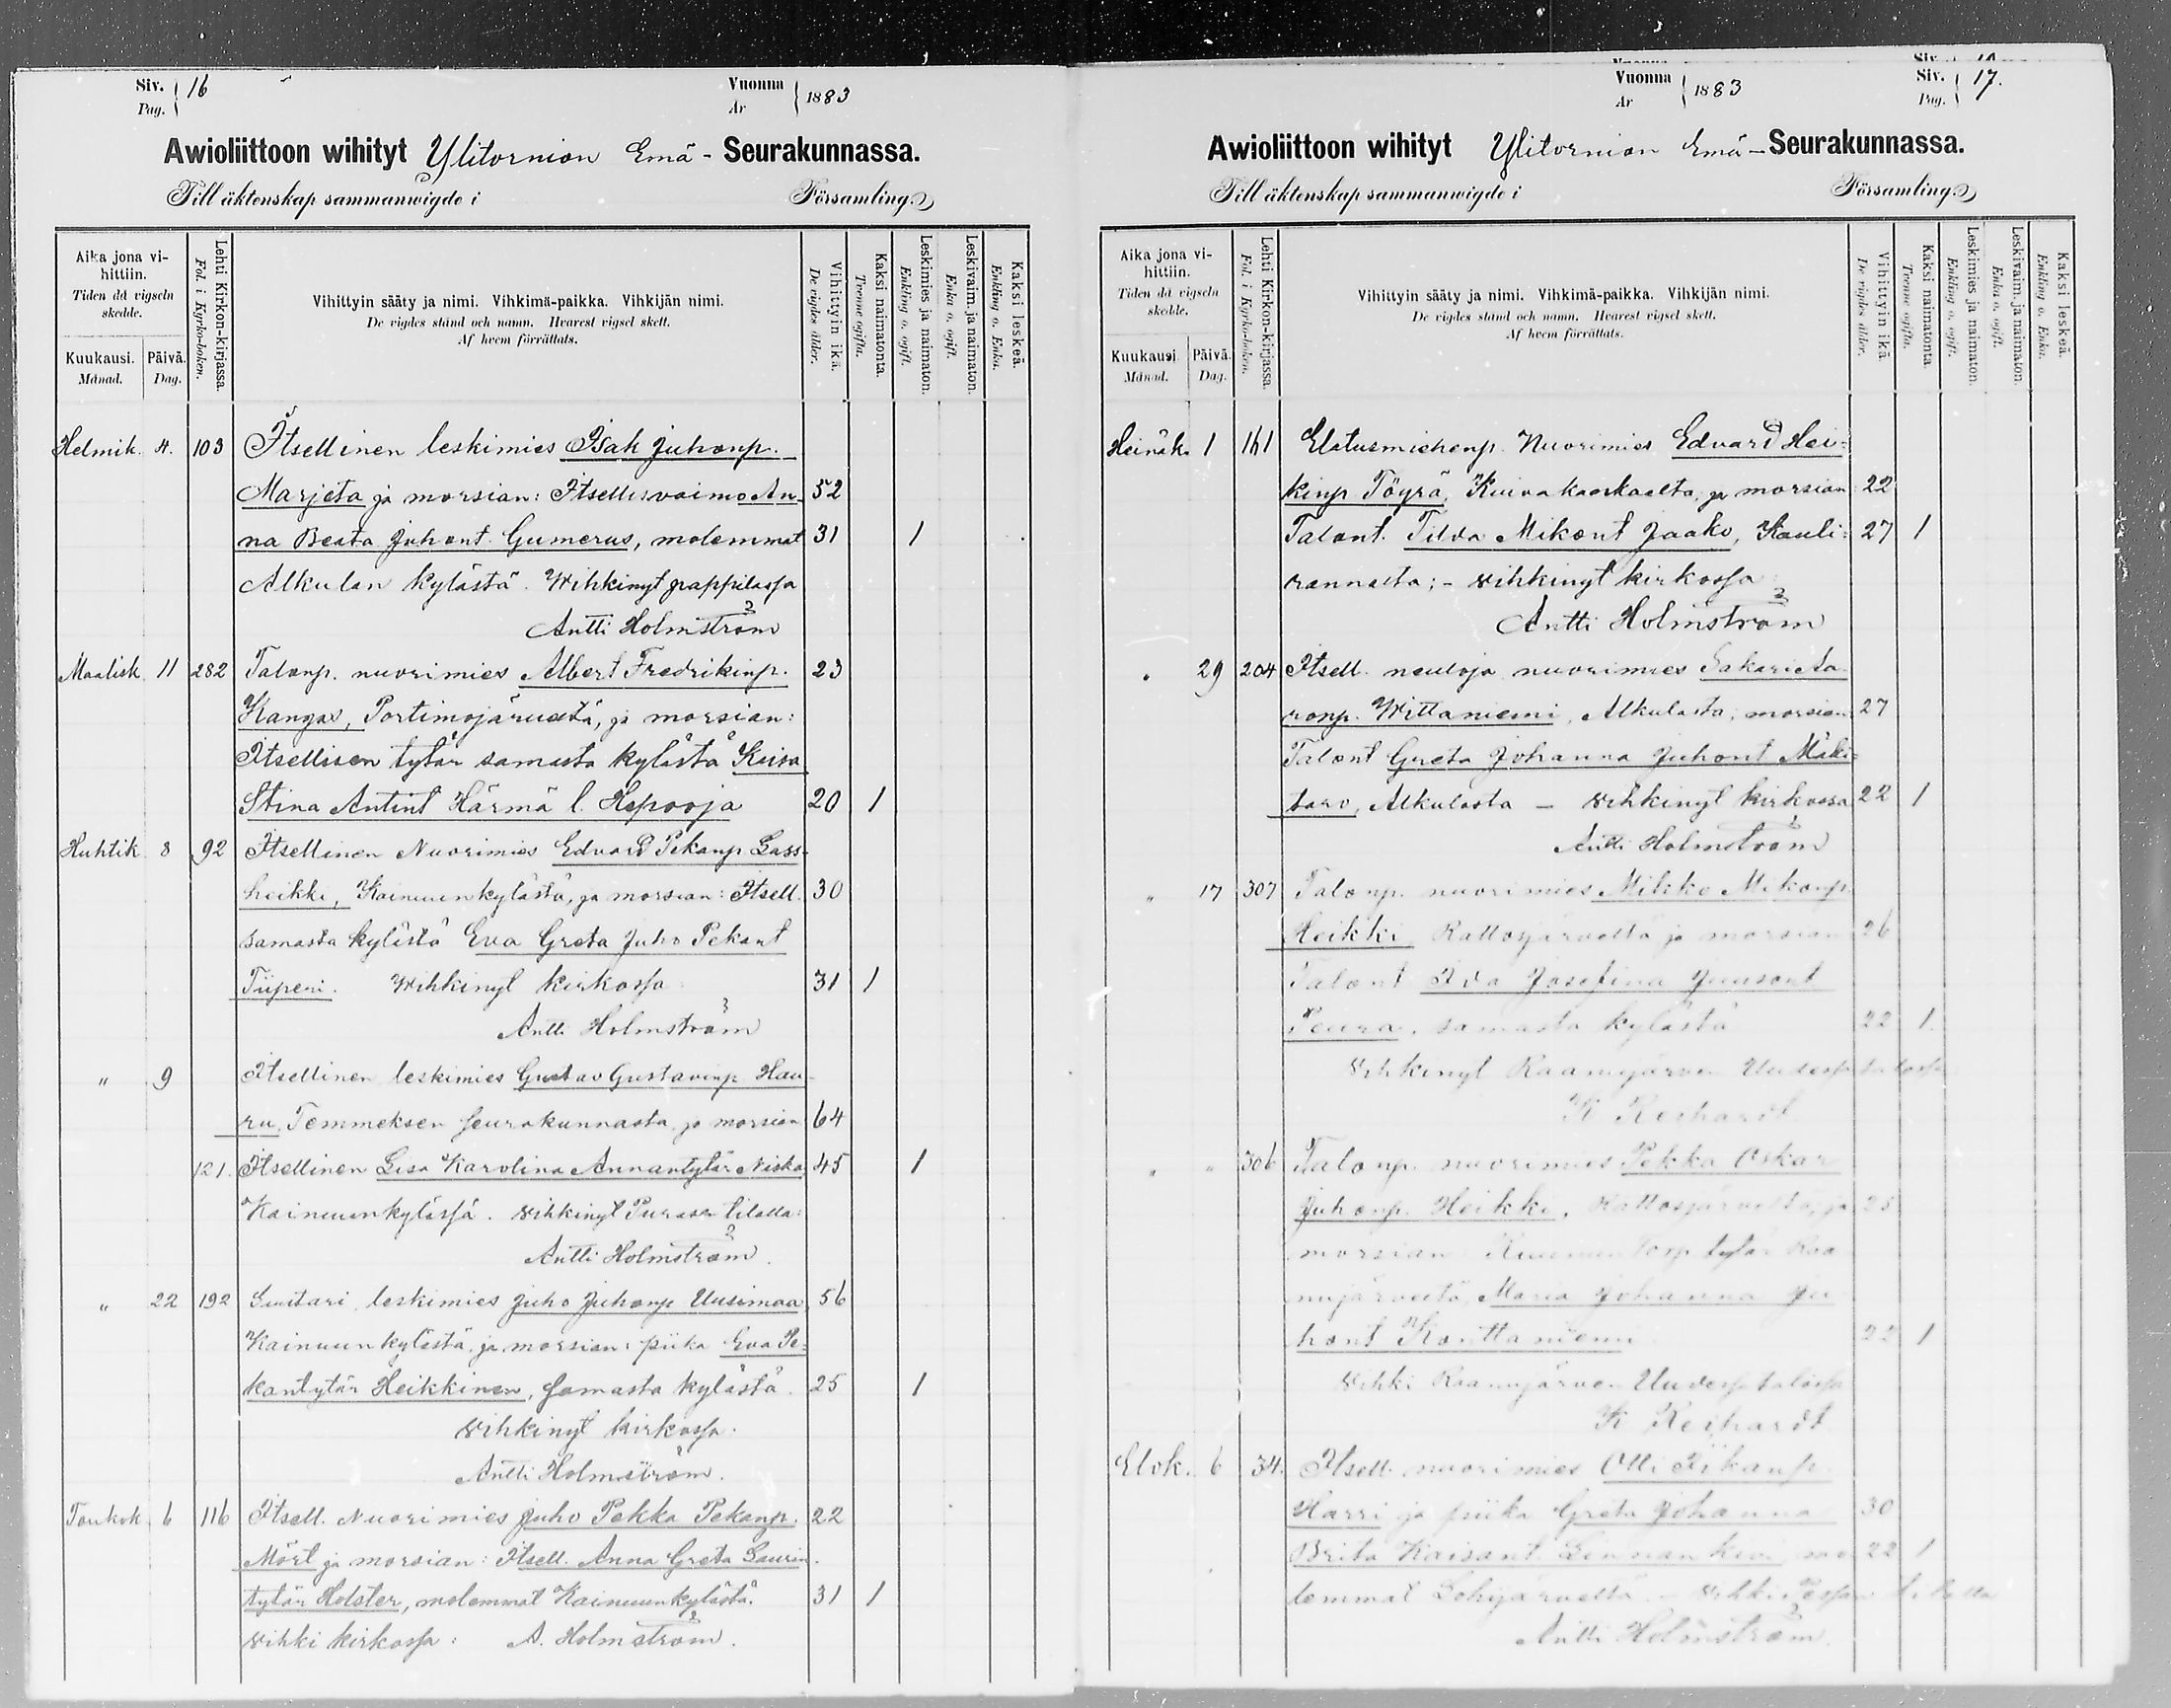 Siv. Pag. 16
Vuonna Ar 1883
Awioliittoon wihityt Ylitornion Emä- Seurakunnassa.
Till äktenskap sammanwigde i Församling.
Aika jona vihittiin.
Tiden då vigseln skedde.
Kuukausi. Månad.
Päivä. Dag.
Lehti Kirkon-kirjassa. Fol. i Kyrko-boken.
Vihittyin sääty ja nimi. Vihkimä-paikka. Vihkijän nimi.
De vigdes stånd och namn. Hvarest vigsel skett.
Af hvem förrättats.
Vihittyin ikä. De vigdes ålder.
Kaksi naimatonta. Tvenne ogifta.
Leskimies ja naimaton. Enkling o. ogift.
Leskivaim. ja naimaton. Enka o. ogift.
Kaksi leskeä. Enkling o. Enka.
Helmik. 4. 103 Itsellinen leskimies Isak Juhonp.
Marjeta ja morsian: Itsellisvaimo An- 52
na Beata Juhont. Gumerus, molemmat 31 1
Alkulan kylästä. Wihkinyt pappilassa
Antti Holmström
Maalisk. 11 282 Talonp. nuorimies Albert Fredrikinp. 23
Kangas, Portimojärveltä, ja morsian:
Itsellisen tytär samasta kylästä Kaisa
Stina Antint Härmä l. Hepooja 20 1
Huhtik 8 92 Itsellinen Nuorimies Edvard Pekanp Lass-
heikki, Kainuunkylästä, ja morsian: Itsell. 30
samasta kylästä Eva Greta Juho Pekant
Tiiperi. Wihkinyt kirkossa 31 1
Antti Holmström
" 9 Itsellinen leskimies Gustav Gustavinp Hau-
ru, Temmeksen seurakunnasta, ja morsian 64
121. Itsellinen Lisa Karolina Annantytär Niska, 45 1
Kainuunkylässä. Wihkinyt Purasen tilalla:
Antti Holmström.
" 22 192 Suutari leskimies Juho Juhonp Uusimaa, 56
Kainuunkylästä, ja morsian: piika Eva Pe-
kantytär Heikkinen, samasta kylästä. 25 1
Wihkinyt kirkossa.
Antti Holmström.
Toukok. 6 116 Itsell. Nuorimies Juho Pekka Pekanp. 22
Mört ja morsian: Itsell. Anna Greta Laurin-
tytär Holster, molemmat Kainuunkylästä. 31 1
Wihki kirkossa: A. Holmström.
Vuonna Ar 1883
Siv. Pag. 17.
Awioliittoon wihityt Ylitornion Emä- Seurakunnassa.
Till äktenskap sammanwigde i Församling.
Aika jona vihittiin.
Tiden då vigseln skedde.
Kuukausi. Månad.
Päivä. Dag.
Lehti Kirkon-kirjassa. Fol. i Kyrko-boken.
Vihittyin sääty ja nimi. Vihkimä-paikka. Vihkijän nimi.
De vigdes stånd och namn. Hvarest vigsel skett.
Af hvem förrättats.
Vihittyin ikä. De vigdes ålder.
Kaksi naimatonta. Tvenne ogifta.
Leskimies ja naimaton. Enkling o. ogift.
Leskivaim. ja naimaton. Enka o. ogift.
Kaksi leskeä. Enkling o. Enka.
Heinäk. 1 161 Elatusmiehenp. Nuorimies Edvard Hei-
kinp Töyrä, Kuivakankaalta, ja morsian 22
Talont. Tilda Mikont Jaako, Kauli- 27 1
rannalta; - wihkinyt kirkossa
Antti Holmström
" 29 204 Itsell. neuloja nuorimies Sakari Aa-
ronp. Wittaniemi, Alkulasta; morsian 27
Talont Greta Johanna Juhont Mäki-
talo, Alkulasta - wihkinyt kirkossa 22 1
Antti Holmström
" 17 307 Talonp. nuorimies Mikko Mikonp.
Heikki Rattosjärveltä ja morsian 26
Talont Ida Josefina Juusont
Peura, samasta kylästä 22 1.
Wihkinyt Raanujärven Uudessa talossa
K Reihardt
" " 306 Talonp. nuorimies Pekka Oskar
Juhonp. Heikki, Rattosjärveltä, ja 25
morsian tytär Raa
nujärveltä Maria Johanna Ju
hont Konttaniemi 22 1
Wihki Raanujärven Uudessa talossa
K Reihardt
Elok. 6 34. Itsell. nuorimies Olli Pikanp.
Harri ja piika Greta Johanna 30
Brita Kaisant mo 22 1
lemmat Lohijärveltä. - Wihki tilalla
Antti Holmström.